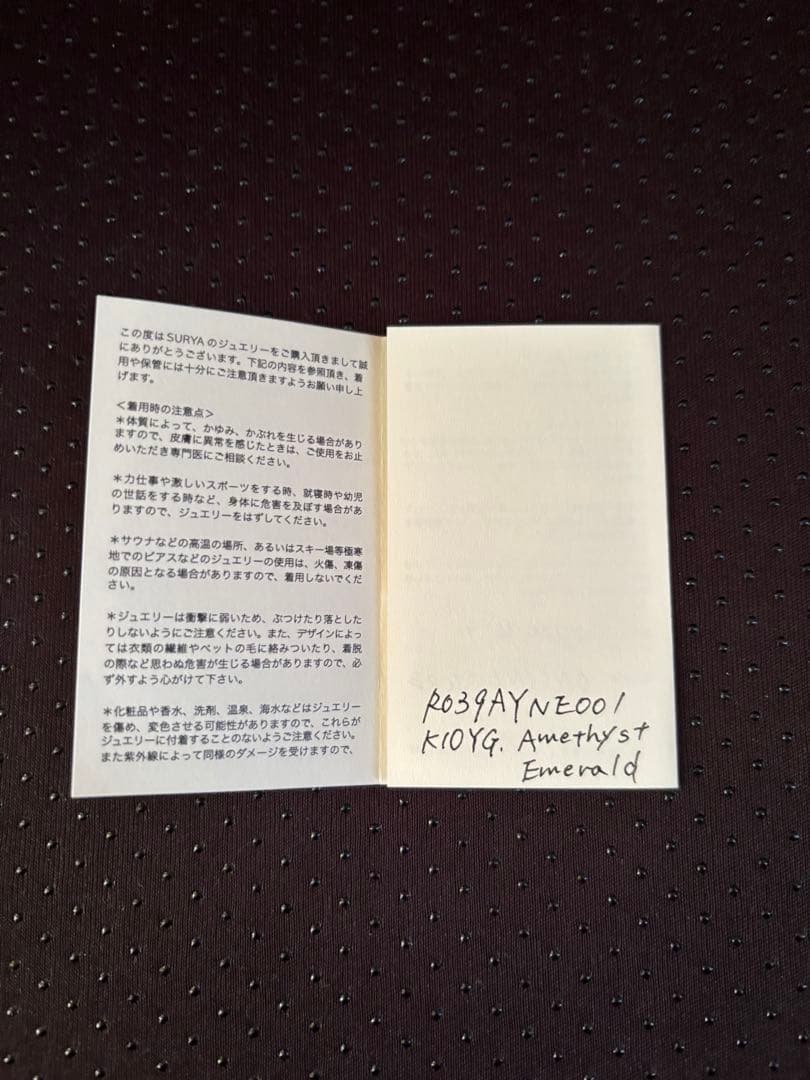 この度は SURYA のジュエリーをご購入頂きまして誠
にありがとうございます。下記の内容を参照頂き、着
用や保管には十分にご注意頂きますようお願い申し上
げます。
＜着用時の注意点＞
＊体質によって、かゆみ、かぶれを生じる場合があり
ますので、皮膚に異常を感じたときは、ご使用をお止
めいただき専門医にご相談ください。
＊力仕事や激しいスポーツをする時、就寝時や幼児
の世話をする時など、身体に危害を及ぼす場合があ
りますので、ジュエリーをはずしてください。
＊サウナなどの高温の場所、あるいはスキー場等極寒
地でのピアスなどのジュエリーの使用は、火傷、凍傷
の原因となる場合がありますので、着用しないでくだ
さい。
＊ジュエリーは衝撃に弱いため、ぶつけたり落とした
りしないようにご注意ください。また、デザインによっ
ては衣類の繊維やペットの毛に絡みついたり、着脱
の際など思わぬ危害が生じる場合がありますので、必
ず外すよう心がけて下さい。
＊化粧品や香水、洗剤、温泉、海水などはジュエリー
を傷め、変色させる可能性がありますので、これらが
ジュエリーに付着することのないようご注意ください。
また紫外線によって同様のダメージを受けますので、
R039AYNE001
K10YG. Amethyst
Emerald